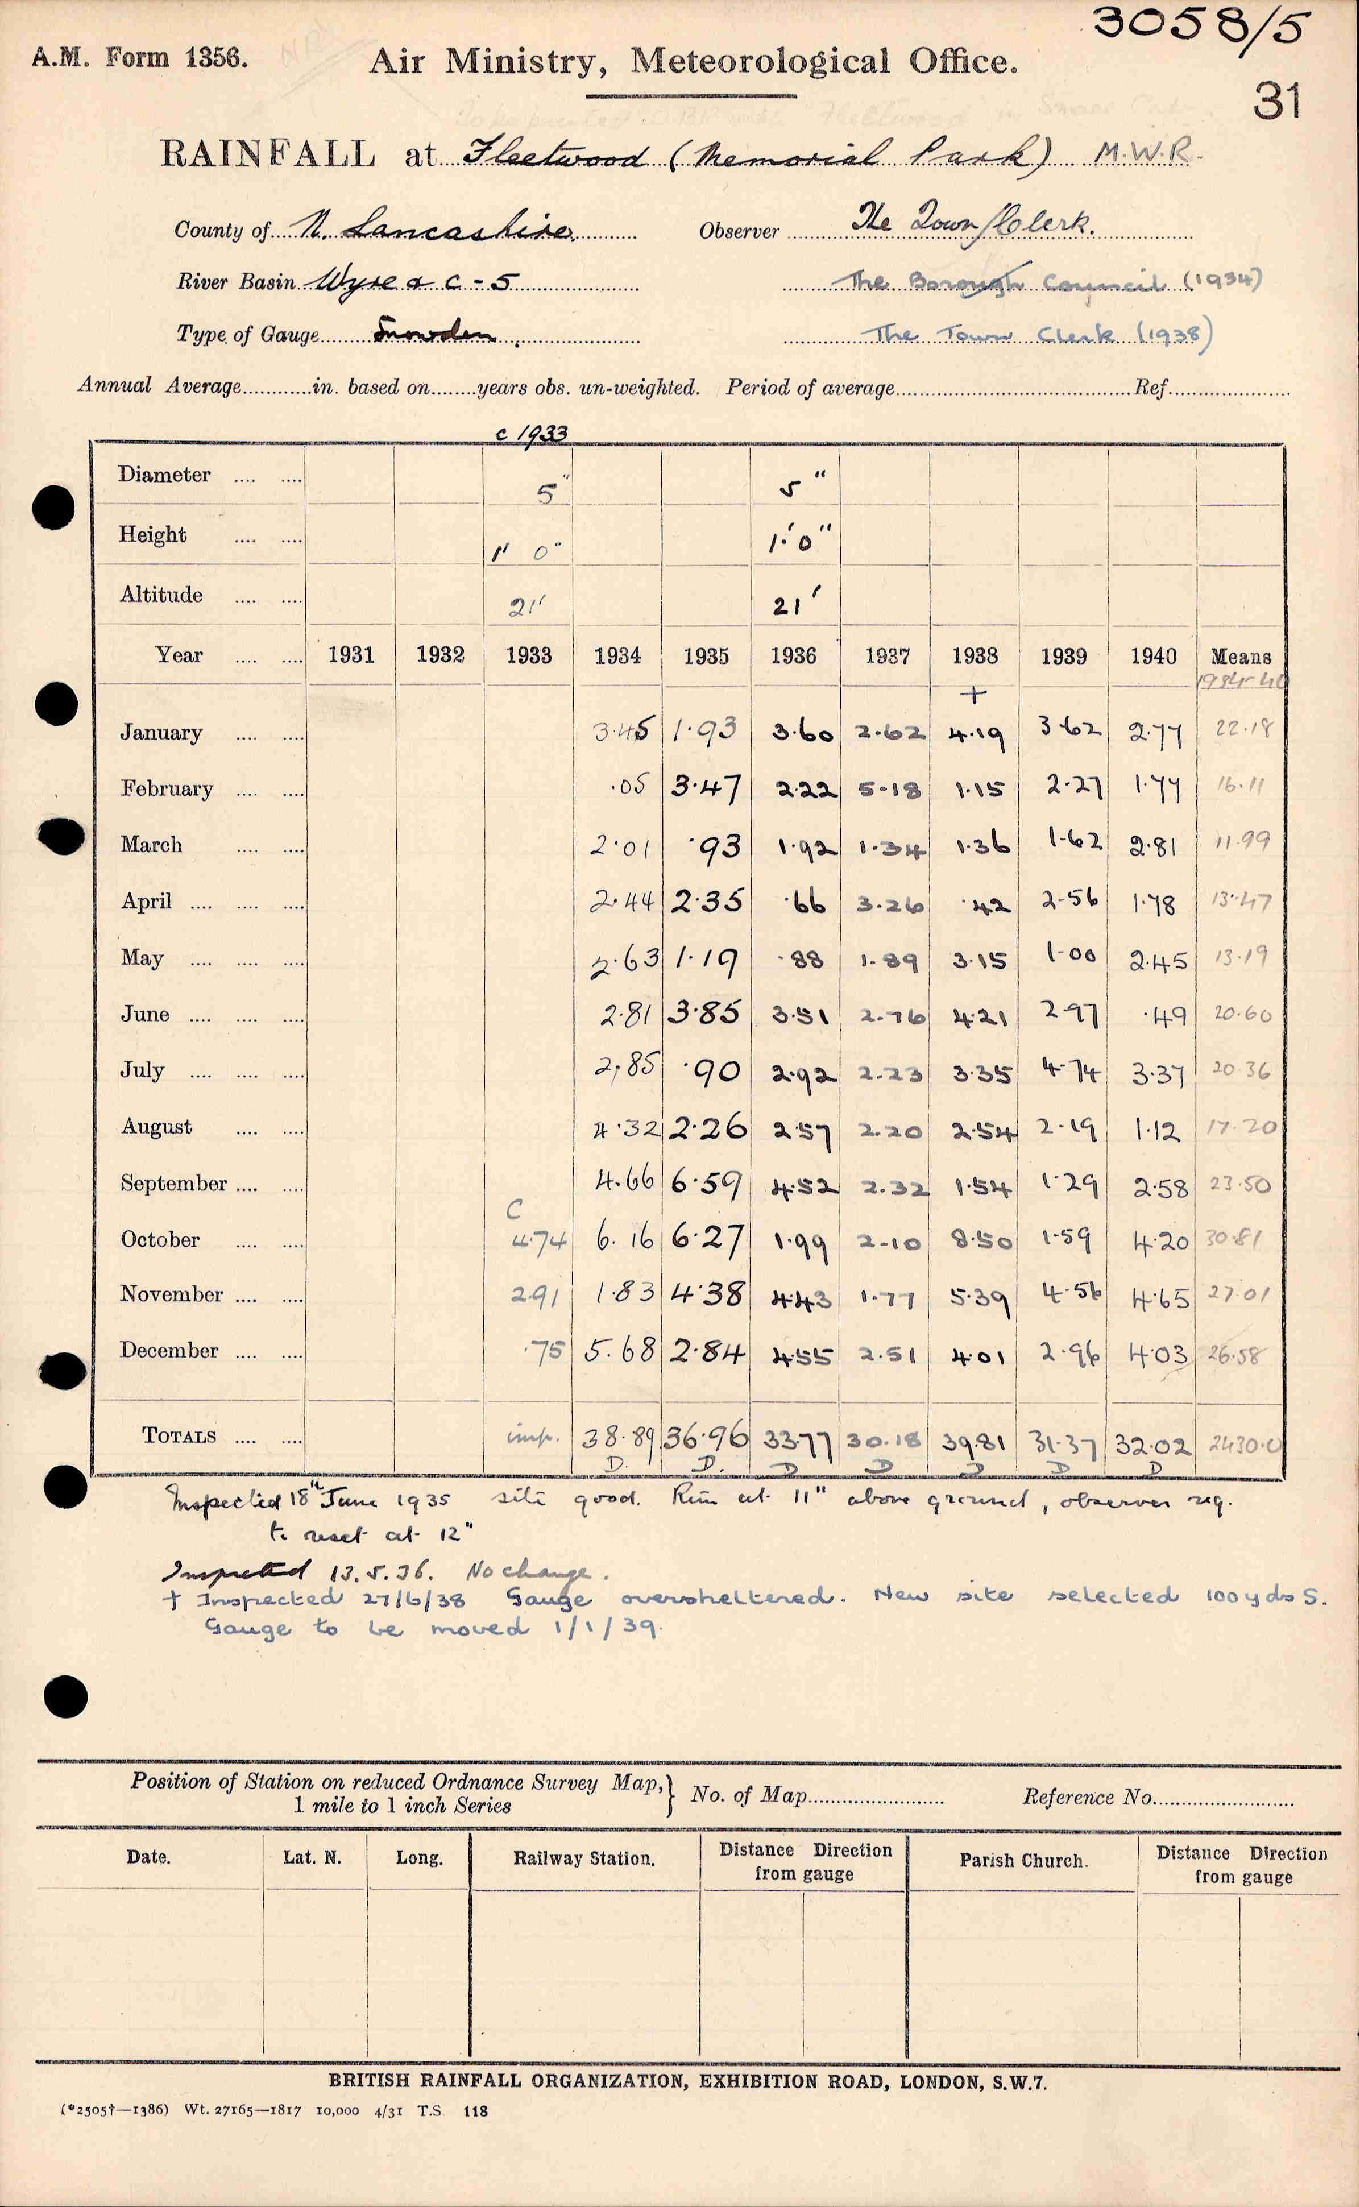 3058/5
A.M. Form 1356.
Air Ministry, Meteorological Office.
31
RAINFALL at Fleetwood (Memorial Park) M.W.R.
County of N. Lancashire Observer The Town Clerk.
River Basin Wyre & C - 5 The Borough Council (1934)
Type of Gauge Snowdon The Town Clerk (1938)
Annual Average in. based on years obs. un-weighted. Period of average Ref.
c 1933
Diameter 5" 5"
Height 1' 0" 1' 0"
Altitude 21' 21'
Year 1931 1932 1933 1934 1935 1936 1937 1938 1939 1940 Means
+ 1934-40
January 3.45 1.93 3.60 2.62 4.19 3.62 2.77 22.18
February .05 3.47 2.22 5.18 1.15 2.27 1.77 16.11
March 2.01 .93 1.92 1.34 1.36 1.62 2.81 11.99
April 2.44 2.35 .66 3.26 .42 2.56 1.78 13.47
May 2.63 1.19 .88 1.89 3.15 1.00 2.45 13.19
June 2.81 3.85 3.51 2.76 4.21 2.97 .49 20.60
July 2.85 .90 2.92 2.23 3.35 4.74 3.37 20.36
August 4.32 2.26 2.57 2.20 2.54 2.19 1.12 17.20
September 4.66 6.59 4.52 2.32 1.54 1.29 2.58 23.50
C
October 4.74 6.16 6.27 1.99 2.10 8.50 1.59 4.20 30.81
November 2.91 1.83 4.38 4.43 1.77 5.39 4.56 4.65 27.01
December .75 5.68 2.84 4.55 2.51 4.01 2.96 4.03 26.58
TOTALS imp. 38.89 36.96 33.77 30.18 39.81 31.37 32.02 2430.0
D. D. D D D D D
Inspected 18th June 1935 site good. Rim at 11" above ground, observer req.
to reset at 12"
Inspected 13.5.36. No change.
+ Inspected 27/6/38 Gauge oversheltered. New site selected 100 yds S.
Gauge to be moved 1/1/39
Position of Station on reduced Ordnance Survey Map, } No. of Map Reference No.
1 mile to 1 inch Series
Date. Lat. N. Long. Railway Station. Distance Direction from gauge Parish Church. Distance Direction from gauge
BRITISH RAINFALL ORGANIZATION, EXHIBITION ROAD, LONDON, S.W.7.
(*2505†—1386) Wt. 27165—1817 10,000 4/31 T.S. 118